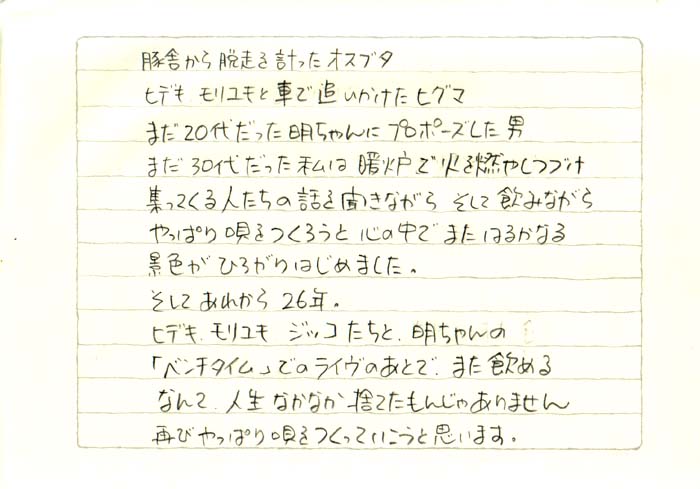 豚舎から脱走を計ったオスブタ
ヒデキ、モリユモと車で追いかけたヒグマ
まだ20代だった明ちゃんにプロポーズした男
まだ30代だった私は暖炉で火を燃やしつづけ
集ってくる人たちの話を聞きながら そして飲みながら
やっぱり唄をつくろうと心の中でまたはるかなる
景色がひろがりはじめました。
そしてあれから26年。
ヒデキ、モリユモ ジッコたちと、明ちゃんの
「ベンチタイム」でのライヴのあとで、また飲める
なんて、人生なかなか捨てたもんじゃありません
再びやっぱり唄をつくっていこうと思います。